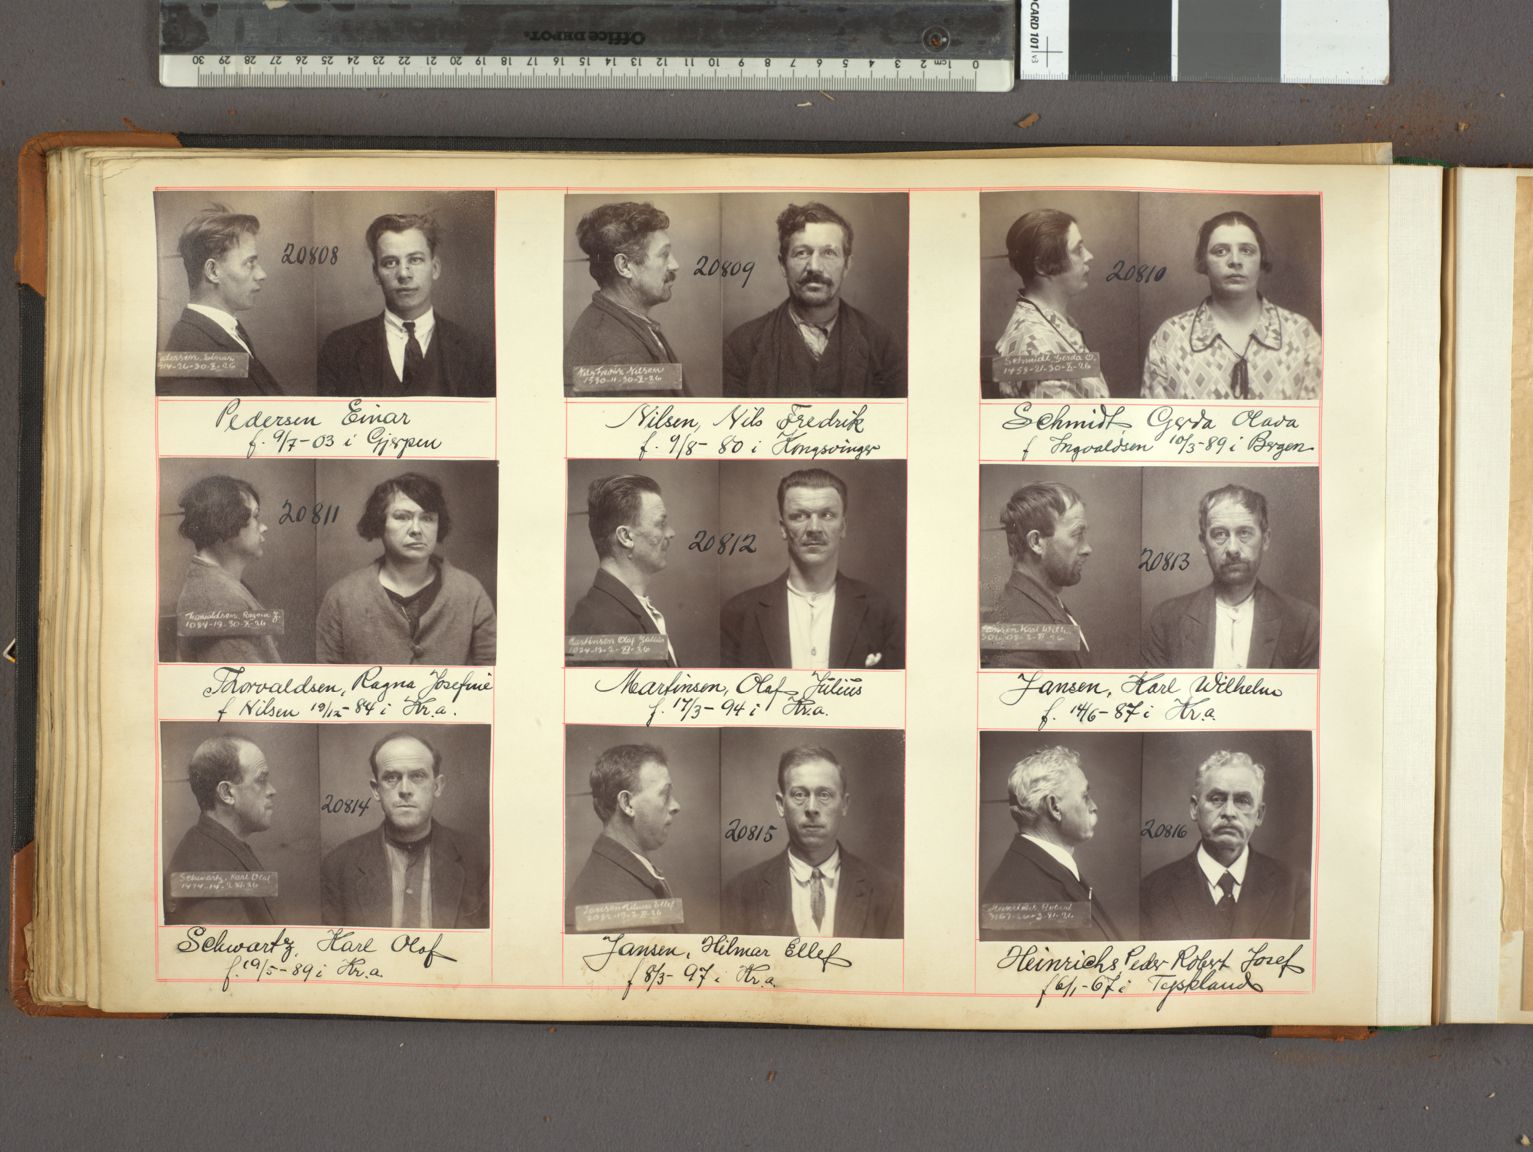 Office DEPOT.
30 29 28 27 26 25 24 23 22 21 20 19 18 17 16 15 14 13 12 11 10 9 8 7 6 5 4 3 2 1cm 0
QPCARD 101 v3
20808
Pedersen Einar
f. 9/7-03 i Gjerpen
20809
Nils Fredrik Nilsen
Nilsen, Nils Fredrik
f. 9/8-80 i Kongsvinger
20810
Schmidt Gerda O.
1459-21-30-X-26
Schmidt, Gerda Olava
f Ingvaldsen 10/3-89 i Bergen
20811
Thorvaldsen Ragna J.
1084-19-30-X-26
Thorvaldsen, Ragna Josefine
f Nilsen 19/12-84 i Kr.a.
20812
Martinsen Olaf Julius
Martinsen, Olaf Julius
f. 17/3-94 i Kr.a.
20813
Jansen Karl Wilh.
Jansen, Karl Wilhelm
f. 14/6-87 i Kr.a.
20814
Schwartz, Karl Olof
1474-14-2-XI-26
Schwartz, Karl Olof
f. 19/5-89 i Kr.a.
20815
Jansen Hilmar Ellef
Jansen, Hilmar Ellef
f 8/3-97 i Kr.a.
20816
Heinrichs, Peder Robert Josef
f 6/1-67 i Tyskland